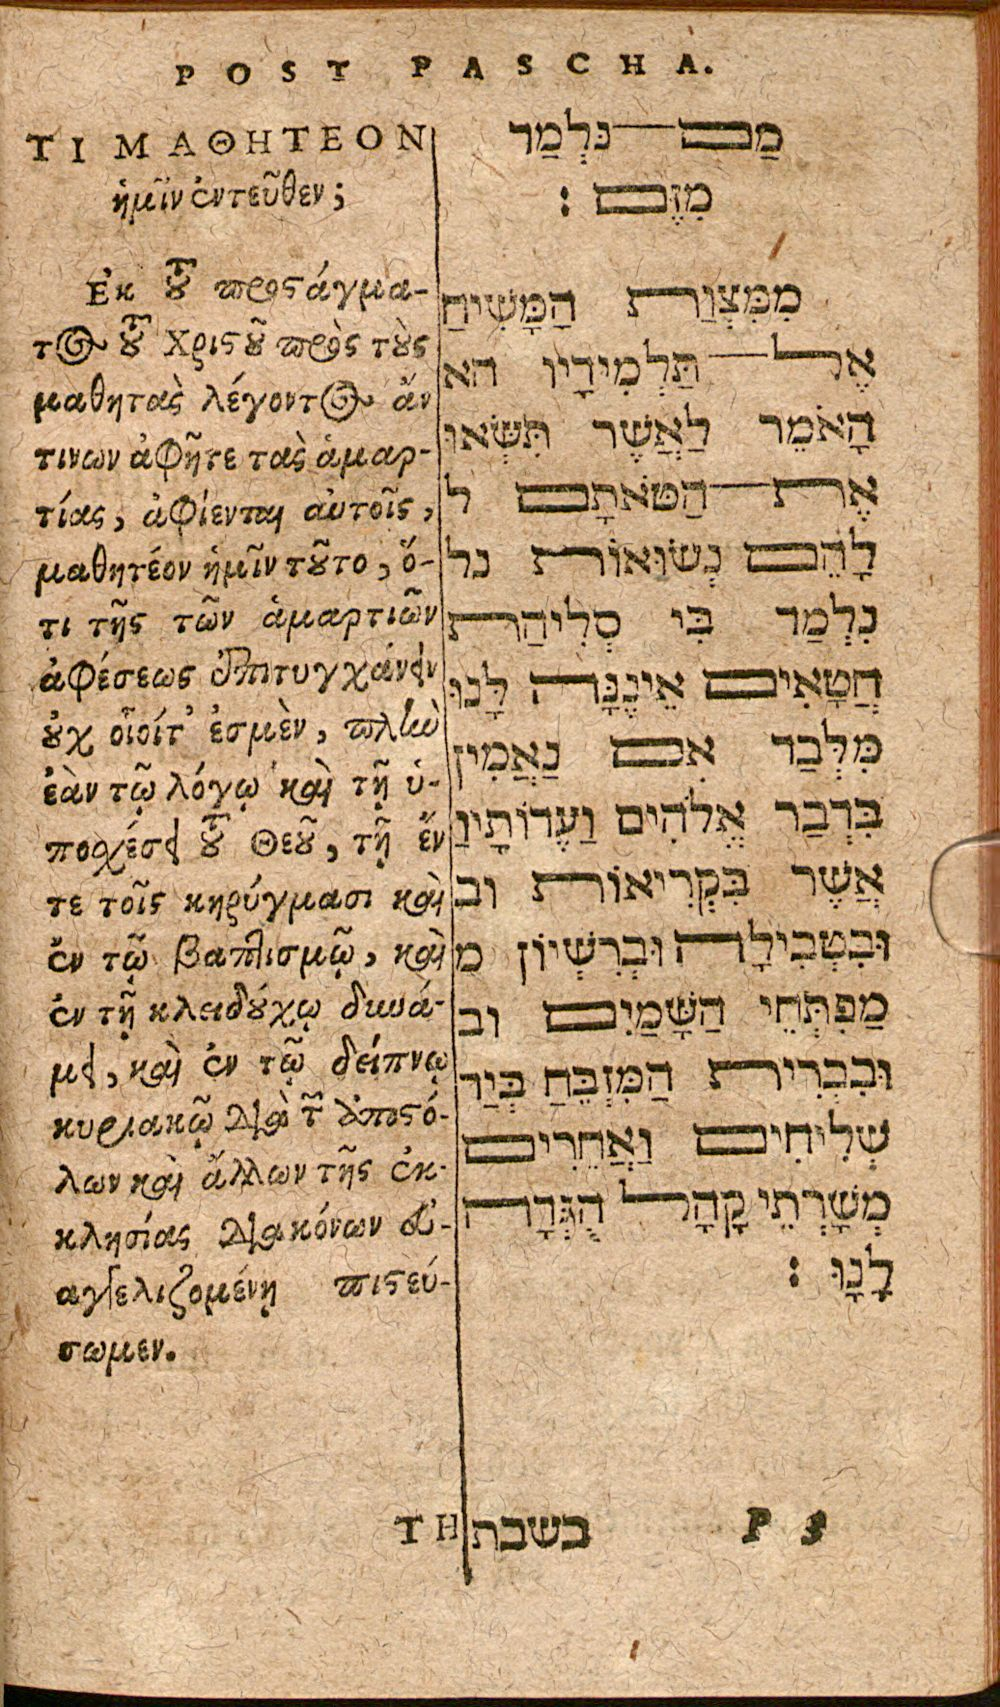 POST PASCHA.
ΤΙ ΜΑΘΗΤΕΟΝ
ἡμῖν ἐντεῦθεν;
Ἐκ τοῦ προςάγμα-
τος τοῦ Χριςοῦ πρὸς τοὺς
μαθητὰς λέγοντος ἄν
τινων ἀφῆτε τὰς ἁμαρ-
τίας, ἀφίενται αὐτοῖς,
μαθητέον ἡμῖν τοῦτο, ὅ-
τι τῆς τῶν ἁμαρτιῶν
ἀφέσεως ἐπιτυγχάνειν
οὐχ οἷοίτ' ἐσμὲν, πλὴν
ἐὰν τῷ λόγῳ καὶ τῇ ὑ-
ποσχέσει τοῦ Θεοῦ, τῇ ἔν
τε τοῖς κηρύγμασι καὶ
ἐν τῷ βαπτισμῷ, καὶ
ἐν τῇ κλειδούχῳ δυνά-
μει, καὶ ἐν τῷ δείπνῳ
κυριακῷ διὰ τῶν ἀποςό-
λων καὶ ἄλλων τῆς ἐκ-
κλησίας διακόνων εὐ-
αγγελιζομένῃ πιςεύ-
σωμεν.
ΤΗ
מַה נִּלְמַד
מִזֶּה :
מִמִּצְוַת הַמָּשִׁיחַ
אֶל תַּלְמִידָיו הא
הָאֹמֵר לַאֲשֶׁר תִּשְׂאוּ
אֶת חַטֹּאתָם ל
לָהֵם נְשׂוּאוֹת נל
נִלְמַד כִּי סְלִיחַת
חֲטָאִים אֵינֶנָּה לָּנוּ
מִּלְּבַד אִם נַאֲמִין
בִּדְבַר אֱלֹהִים וַעֲדוֹתָיו
אֲשֶׁר בִּקְרִיאוֹת וב
וּבִטְבִילָה וּבְרִשְׁיוֹן מ
מַפְתְּחֵי הַשָּׁמַיִם וב
וּבִבְרִית הַמִּזְבֵּחַ בְּיַד
שְׁלִיחִים וַאֲחֵרִים
מְשָׁרְתֵי קָהָל הֻגְּדָה
לָנוּ :
בשבת
P 3